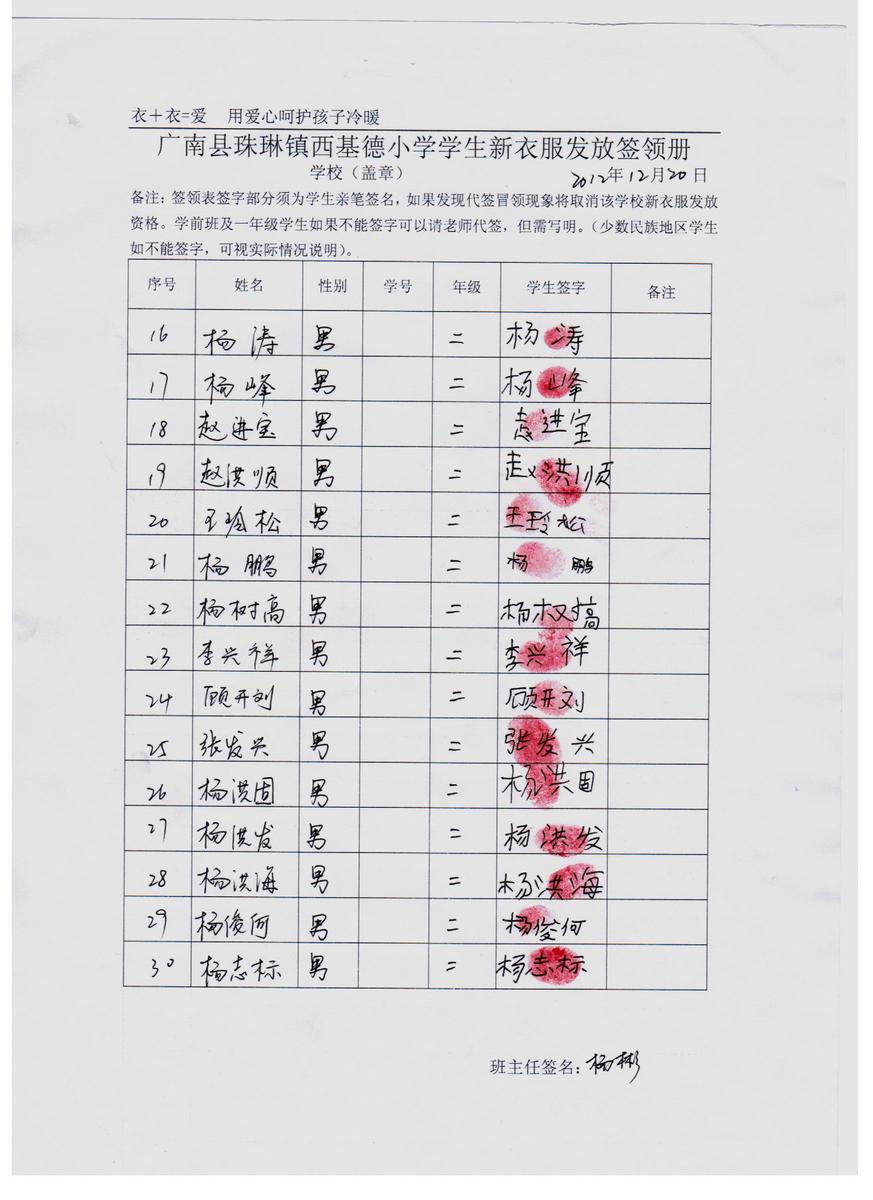 衣+衣=爱 用爱心呵护孩子冷暖
广南县珠琳镇西基德小学学生新衣服发放签领册
学校（盖章） 2012年12月20日
备注：签领表签字部分须为学生亲笔签名，如果发现代签冒领现象将取消该学校新衣服发放
资格。学前班及一年级学生如果不能签字可以请老师代签，但需写明。（少数民族地区学生
如不能签字，可视实际情况说明）。
序号 姓名 性别 学号 年级 学生签字 备注
16 杨涛 男 二 杨涛
17 杨峰 男 二 杨峰
18 赵进宝 男 二 进宝
19 赵洪顺 男 二 赵洪顺
20 王玲松 男 二 王玲松
21 杨鹏 男 二 杨鹏
22 杨树高 男 二 杨权搞
23 李兴祥 男 二 李兴祥
24 顾开刘 男 二 顾开刘
25 张发兴 男 二 张发兴
26 杨洪固 男 二 杨洪固
27 杨洪发 男 二 杨洪发
28 杨洪海 男 二 杨洪海
29 杨俊何 男 二 杨俊何
30 杨志标 男 二 杨志标
班主任签名：杨彬